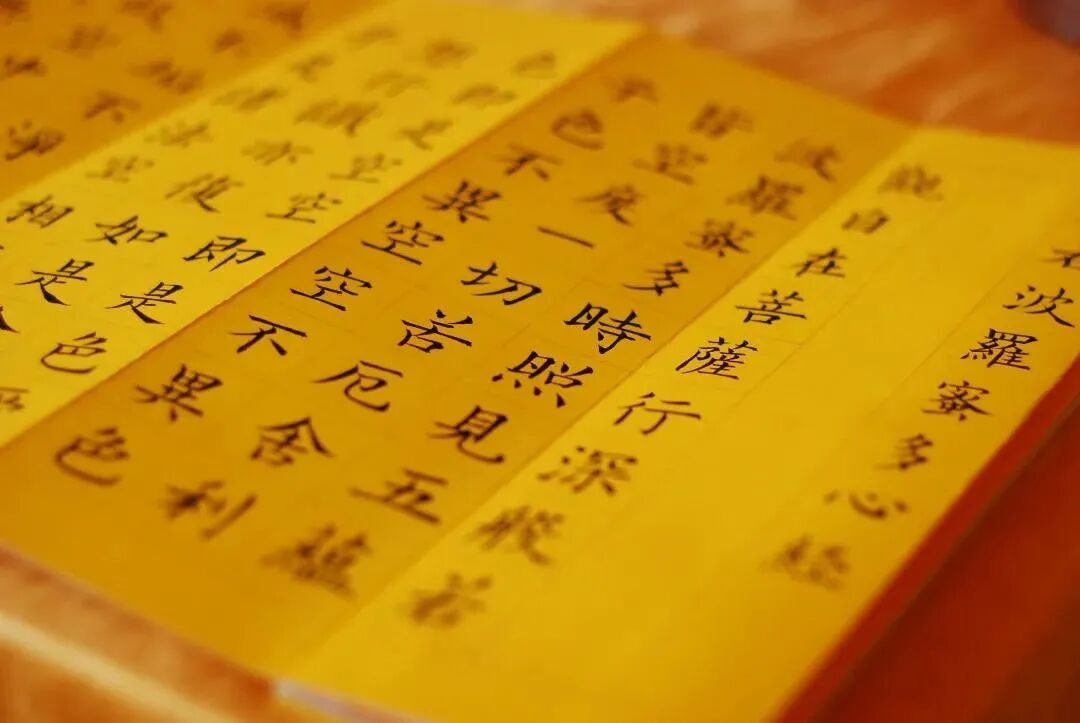 若波羅蜜多心經
觀自在菩薩行深般若
波羅蜜多時照見五蘊
皆空度一切苦厄舍利
子色不異空空不異色
色即是空空即是色
想行識亦復如是
子是諸法空相
不淨